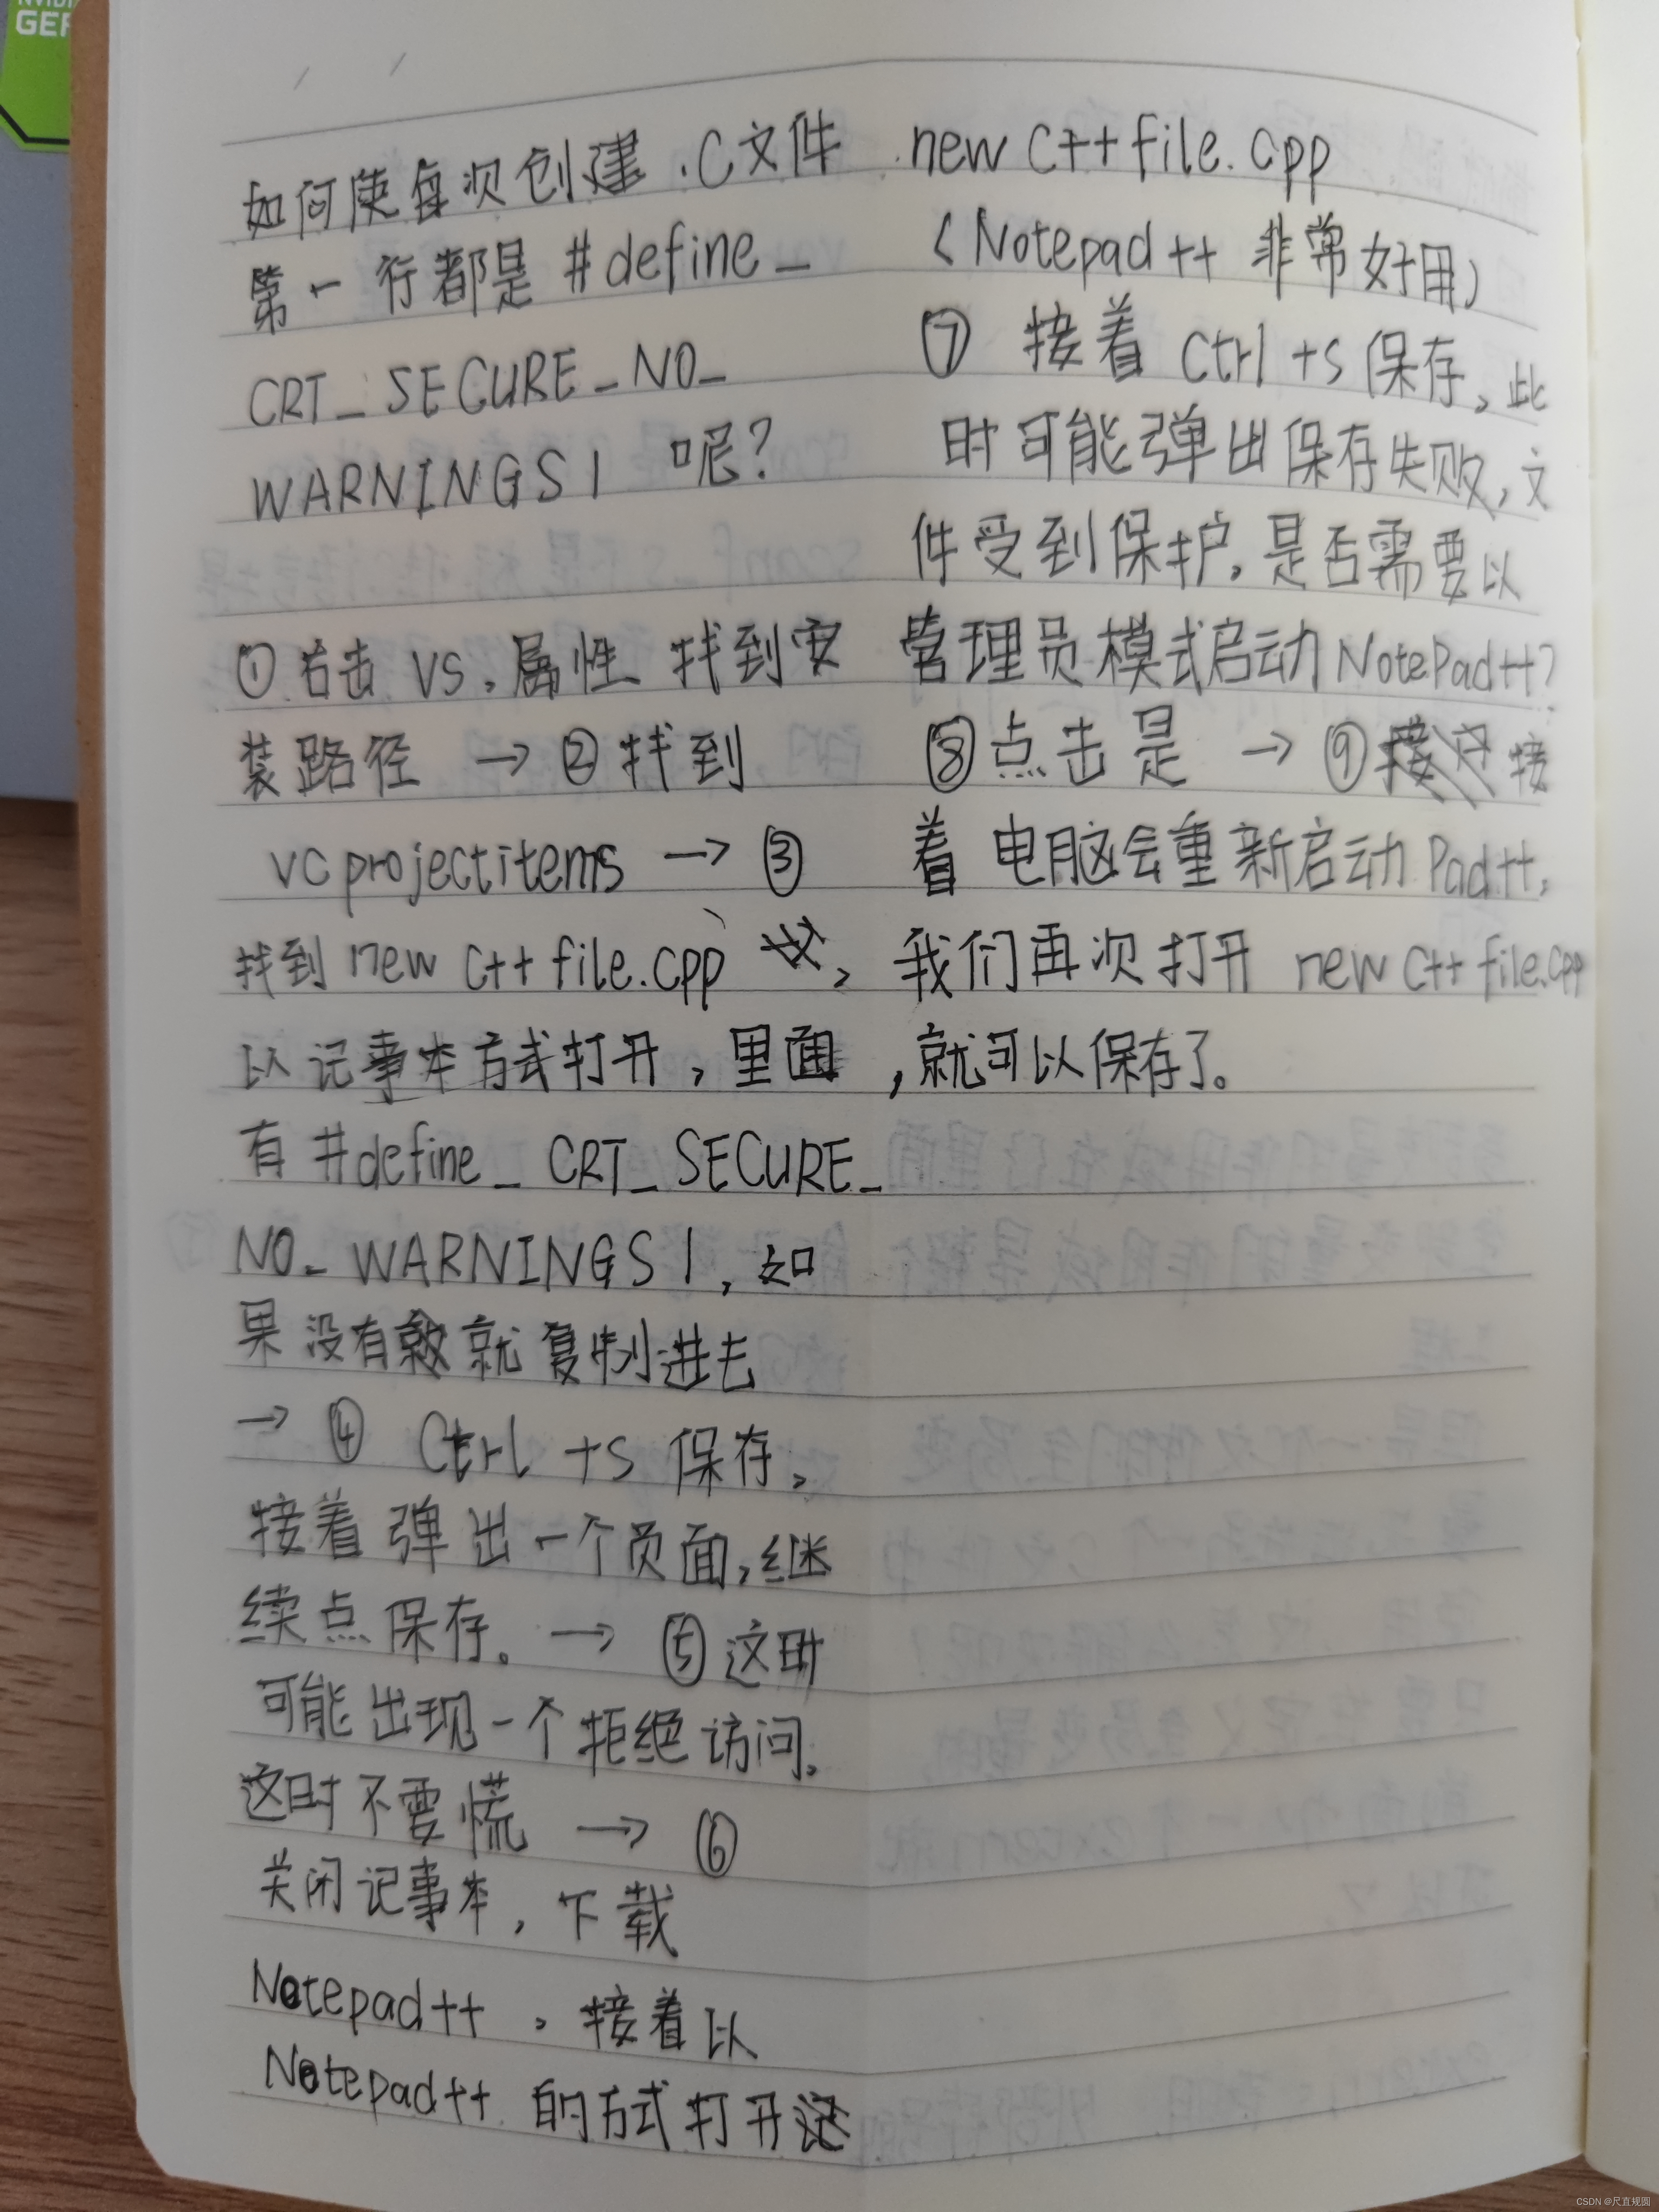 NVIDIA
GEF
如何使每次创建 .C文件
第一行都是 #define_
CRT_SECURE_NO_
WARNINGS 1 呢?
①右击 VS,属性 找到安
装路径 → ②找到
vcprojectitems → ③
找到 new c++ file.cpp,
以记事本方式打开,里面
有 #define_CRT_SECURE_
NO_WARNINGS 1,如
果没有就复制进去
→ ④ Ctrl +s 保存,
接着弹出一个页面,继
续点保存。→ ⑤这时
可能出现一个拒绝访问,
这时不要慌 → ⑥
关闭记事本,下载
Notepad++,接着以
Notepad++ 的方式打开
new C++ file.cpp
(Notepad++ 非常好用)
⑦ 接着 Ctrl +s 保存,此
时可能弹出保存失败,文
件受到保护,是否需要以
管理员模式启动NotePad++?
⑧点击是 → ⑨接
着电脑会重新启动Pad++,
我们再次打开 new C++ file.cpp
,就可以保存了。
CSDN @尺直规圆